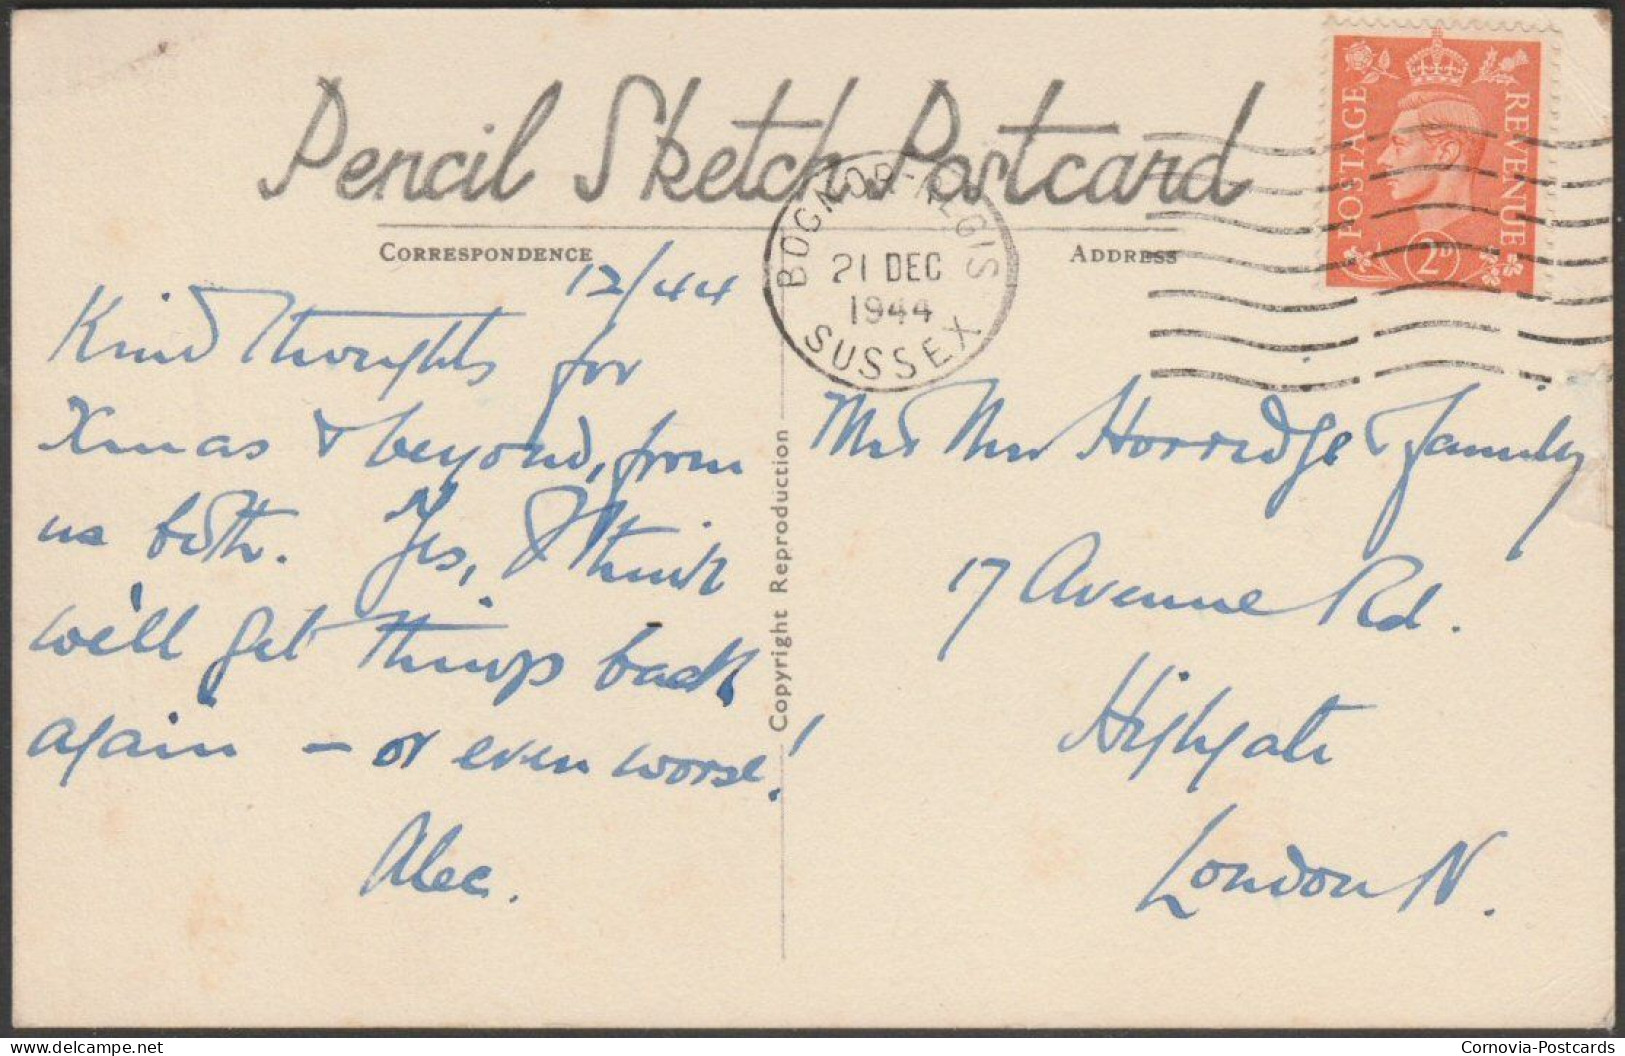 Pencil Sketch Postcard
CORRESPONDENCE
ADDRESS
POSTAGE
REVENUE
2D
BOGNOR-REGIS
21 DEC
1944
SUSSEX
12/44
Kind thoughts for
Xmas & beyond, from
us both. Yes, I think
we'll get things back
again – or even worse!
Alec.
Copyright Reproduction
Mr & Mrs Horridge & family
17 Avenue Rd.
Highgate
London N.
delcampe.net
Cornovia-Postcards